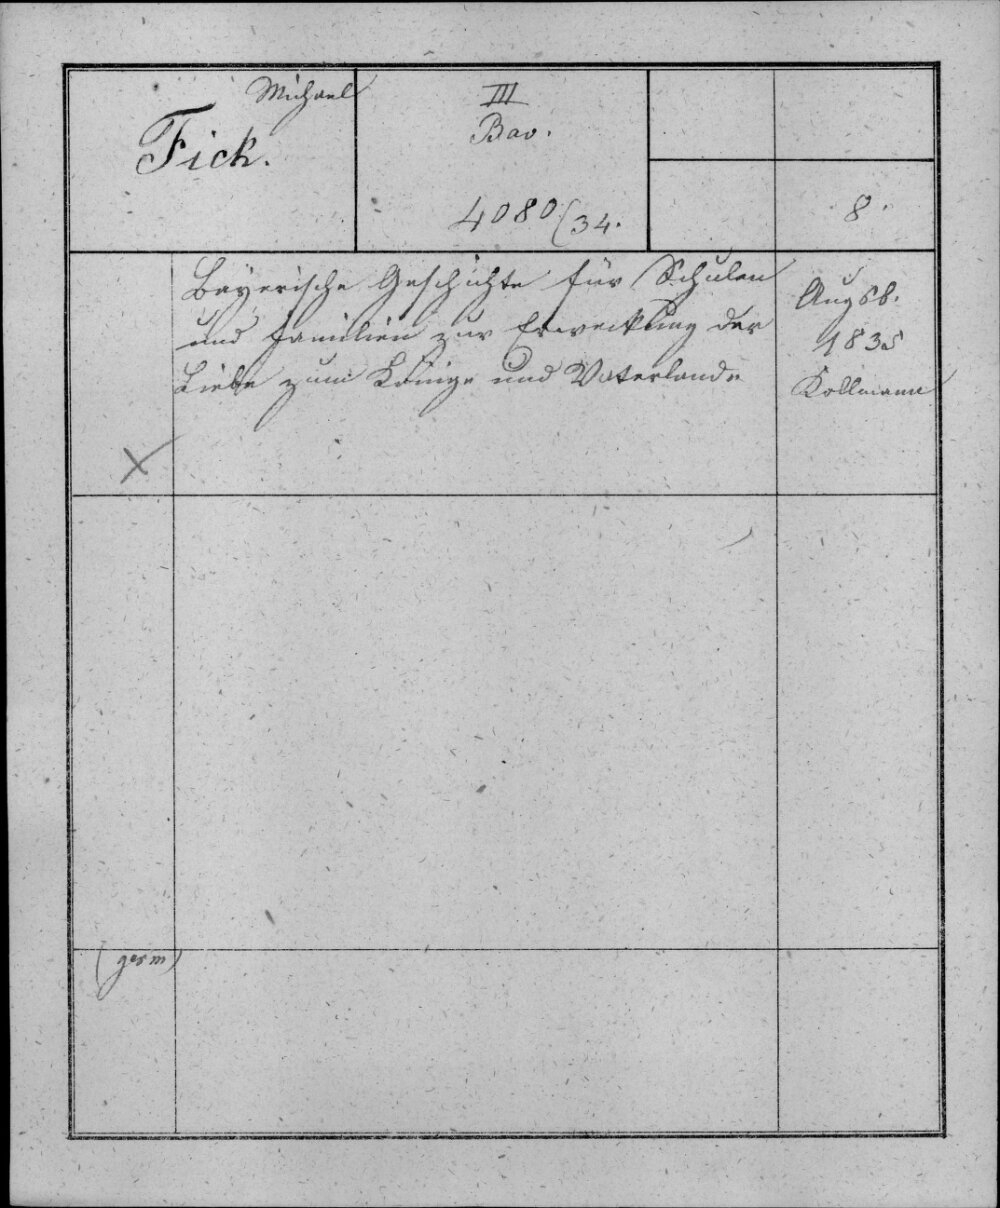 Michael
Fick.
III
Bav.
4080/34.
8.
Bayerische Geschichte für Schulen
und Familien zur Erweckung der
Liebe zum Könige und Vaterlande
Augsb.
1835
Kollmann
X
(germ)